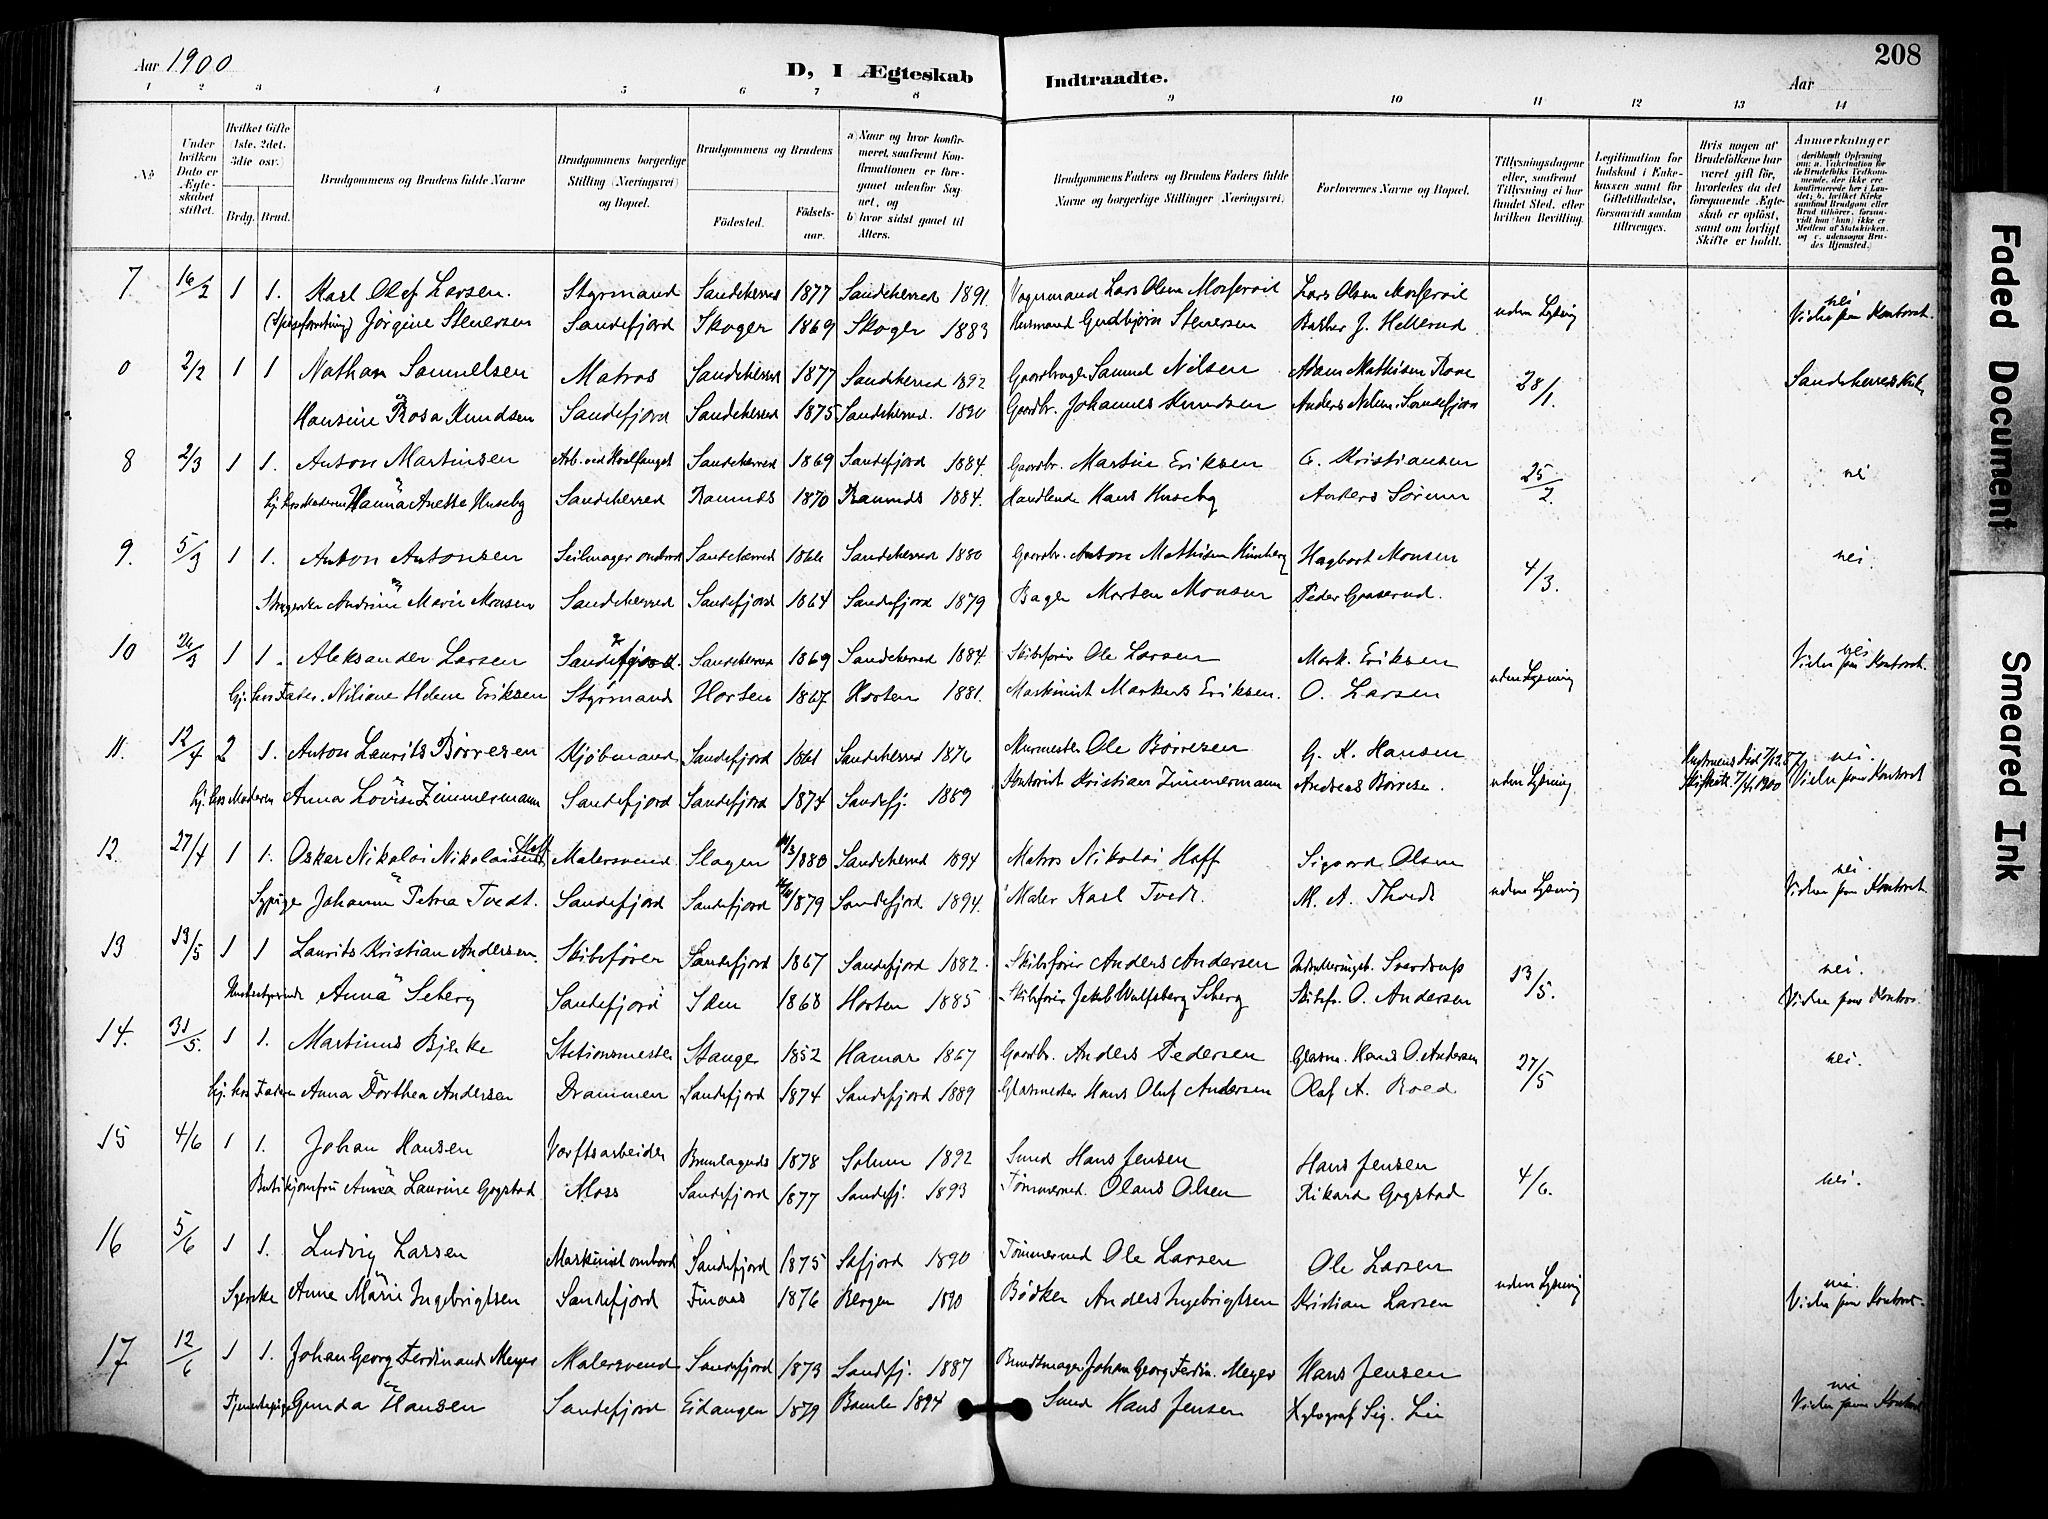 Aar 1900
D, I Ægteskab Indtraadte.
208
Aar
1 2 3 4 5 6 7 8 9 10 11 12 13 14
No
Under hvilken Dato er Ægteskabet stiftet.
Hvilket Gifte (1ste, 2det, 3die osv.)
Brdg. Brud.
Brudgommens og Brudens fulde Navne
Brudgommens borgerlige Stilling (Næringsvei) og Bopæl.
Brudgommens og Brudens
Fødested. Fødselsaar.
a) Naar og hvor konfirmeret, saafremt Konfirmationen er foregaaet udenfor Sognet, og
b) hvor sidst gaaet til Alters.
Brudgommens Faders og Brudens Faders fulde Navne og borgerlige Stillinger (Næringsvei).
Forlovernes Navne og Bopæl.
Tillysningsdagene eller, saafremt Tillysning ei har fundet Sted, efter hvilken Bevilling.
Legitimation for Indskud i Enkekassen samt for Giftetilladelse, forsaavidt saadan tiltrænges.
Hvis nogen af Brudefolkene har været gift før, hvorledes da det foregaaende Ægteskab er opløst, samt om lovligt Skifte er holdt.
Anmærkninger
(deriblandt Oplysning om: a. Vaccination for de Brudefolks Vedkommende, der ikke ere konfirmerede her i Landet; b. hvilket Kirkesamfund Brudgom eller Brud tilhører, forsaavidt han (hun) ikke er Medlem af Statskirken, og c. udensogns Brudes Hjemsted.)
7. 16/2 1 1. Karl Olaf Larsen. Styrmand Sandeherred 1877 Sandeherred 1891. Lars Olsen Moserød Lars Olsen Moserød uden Lysning nei
Jørgine Stenersen Sandefjord Skoger 1869 Skoger 1883 Husmand Gudbjørn Stenersen J. Hellerud Vielse paa Kontoret.
0 2/2 1 1 Nathan Samuelsen Matros Sandeherred 1877 Sandeherred 1892 Gaardbruger Samuel Nilsen Adam Mathisen 28/1. Sandeherreds Kirke
Hansine Rosa Knudsen Sandefjord Sandeherred 1875 Sandeherred. 1890 Gaardbr. Johannes Knudsen Anders Nilsen, Sandefjord
8 2/3 1 1. Anton Martinsen Arb. ved Hvalfanget Sandeherred 1869 Sandefjord 1884. Gaardbr. Martin Eriksen G. Kristiansen 25/2. nei
Hj. hos Moderen Hanna Anette Huseby Sandeherred Ramnes 1870 Ramnes 1884. Handlende Hans Huseby Anders Sørum
9. 5/3 1 1. Anton Antonsen Seilmager ombord Sandeherred Sandeherred 1880 Gaardbr. Anton Mathisen Hagbart Monsen 4/3. nei.
Andrine Marie Monsen Sandeherred Sandefjord 1864 Sandefjord 1879 Bager Morten Monsen Peder Gaaserud.
10 24/3 1 1. Aleksander Larsen Sandefjord. Sandeherred 1869 Sandeherred 1884. Skibsfører Ole Larsen Mark. Eriksen uden Lysning nei
Hj. hos Fader. Niliane Helene Eriksen Styrmand Horten 1867 Horten 1881. Maskinist Markus Eriksen. O. Larsen Vielse paa Kontoret.
11. 12/4 2 1. Anton Laurits Børresen Kjøbmand Sandefjord 1861 Sandeherred 1876 Murmester Ole Børresen G. K. Hansen uden Lysning nei.
Hj. hos Moderen Anna Lovise Zimmermann Sandefjord Sandefjord 1874 Sandefj. 1889 Kontorist Kristian Zimmermann Andreas Børresen. Vielse paa Kontoret
12. 27/4 1 1. Oskar Nikolai Nikolaisen Hoff Malersvend Slagen 1880 Sandeherred 1894 Matros Nikolai Hoff Sigvard Olsen uden Lysning nei.
Sypige Johanne Petrea Tvedt. Sandefjord Sandefjord 1879 Sandefjord 1894. Maler Karl Tvedt. M. A. Thvedt Vielse paa Kontoret.
13 13/5 1 1 Laurits Kristian Andersen. Skibsfører Sandefjord 1867 Sandefjord 1882. Skibsfører Anders Andersen Sverdrup 13/5. nei.
Husbestyrerinde Anna Seberg Sandefjord Skien 1868 Horten 1885 Skibsfører Jakob Wulfsberg Seberg Skibsf. O. Andersen Vielse paa Kontor.
14. 31/5. 1 1. Martinus Bjerke Stationsmester Stange 1852 Hamar 1867 Gaardbr. Anders Pedersen Glasm. Hans O. Andersen 27/5 nei.
Hj. hos Faderen Anna Dorthea Andersen Drammen Sandefjord 1874 Sandefjord 1889 Glasmester Hans Oluf Andersen Olaf A. Roed
15 4/6 1 1. Johan Hansen Værftsarbeider Brunlagnæs 1878 Solum 1892 Smed Hans Jensen Hans Jensen 4/6. nei.
Butikjomfru Anna Laurine Gogstad Moss Sandefjord 1877 Sandefj. 1893 Tømmermd. Olaus Olsen Rikard Gogstad
16 5/6 1 1. Ludvig Larsen Maskinist ombord Sandefjord 1875 Safjord 1890 Tømmermd Ole Larsen Ole Larsen uden Lysning nei
Syerske Anne Marie Ingebrigtsen Sandefjord Finaas 1876 Bergen 1890 Bødker Anders Ingebrigtsen Kristian Larsen Vielse paa Kontoret.
17 12/6 1 1. Johan Georg Ferdinand Meyer Malersvend Sandefjord 1873 Sandefj. 1887 Buntmager Johan Georg Ferdin. Meyer Hans Jensen nei
Tjenestepige Gunda Hansen Sandefjord Eidanger 1879 Bamle 1894 Smed Hans Jensen Xylograf Sig. Lie Vielse paa Kontoret
Faded Document
Smeared Ink